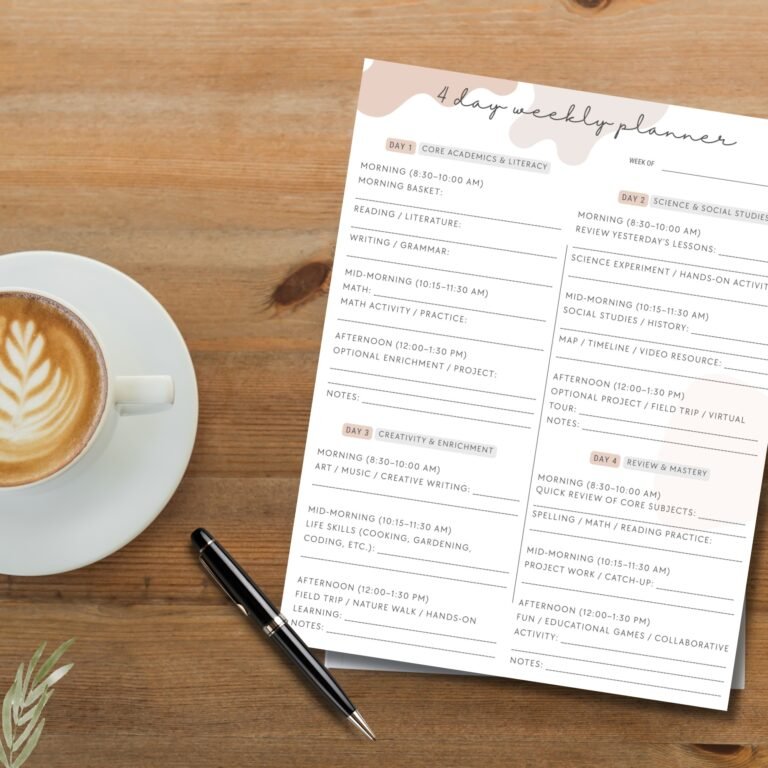 4 day weekly planner
WEEK OF
DAY 1 CORE ACADEMICS & LITERACY
MORNING (8:30–10:00 AM)
MORNING BASKET:
READING / LITERATURE:
WRITING / GRAMMAR:
MID-MORNING (10:15–11:30 AM)
MATH:
MATH ACTIVITY / PRACTICE:
AFTERNOON (12:00–1:30 PM)
OPTIONAL ENRICHMENT / PROJECT:
NOTES:
DAY 2 SCIENCE & SOCIAL STUDIES
MORNING (8:30–10:00 AM)
REVIEW YESTERDAY'S LESSONS:
SCIENCE EXPERIMENT / HANDS-ON ACTIVIT
MID-MORNING (10:15–11:30 AM)
SOCIAL STUDIES / HISTORY:
MAP / TIMELINE / VIDEO RESOURCE:
AFTERNOON (12:00–1:30 PM)
OPTIONAL PROJECT / FIELD TRIP / VIRTUAL
TOUR:
NOTES:
DAY 3 CREATIVITY & ENRICHMENT
MORNING (8:30–10:00 AM)
ART / MUSIC / CREATIVE WRITING:
MID-MORNING (10:15–11:30 AM)
LIFE SKILLS (COOKING, GARDENING,
CODING, ETC.):
AFTERNOON (12:00–1:30 PM)
FIELD TRIP / NATURE WALK / HANDS-ON
LEARNING:
NOTES:
DAY 4 REVIEW & MASTERY
MORNING (8:30–10:00 AM)
QUICK REVIEW OF CORE SUBJECTS:
SPELLING / MATH / READING PRACTICE:
MID-MORNING (10:15–11:30 AM)
PROJECT WORK / CATCH-UP:
AFTERNOON (12:00–1:30 PM)
FUN / EDUCATIONAL GAMES / COLLABORATIVE
ACTIVITY:
NOTES: